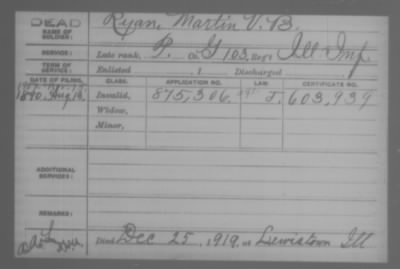 DEAD
NAME OF SOLDIER:
Ryan, Martin V. B.
SERVICE:
Late rank, P. Co. G 103, Reg't Ill Inf
TERM OF SERVICE:
Enlisted , 1 Discharged
DATE OF FILING. CLASS. APPLICATION NO. LAW. CERTIFICATE NO.
1890. Aug 18. Invalid, 875,306. J. 603,939
Widow,
Minor,
ADDITIONAL SERVICES:
REMARKS:
Died Dec 25, 1919, at Lewistown Ill